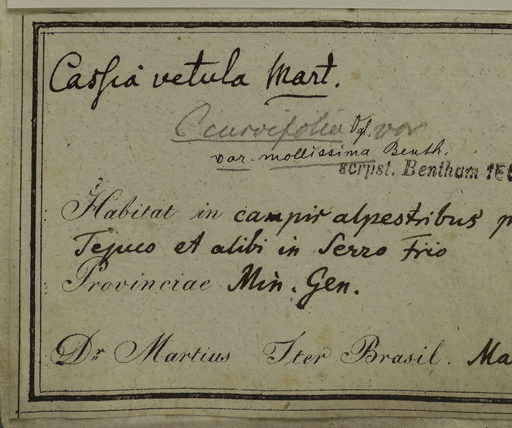 Cassia vetula Mart.
C curvifolia Vgl. var
var. mollissima Benth.
scrpst. Bentham
Habitat in campis alpestribus p
Tejuco et alibi in Serro Frio
Provinciae Min. Gen.
Dr Martius Iter Brasil. Ma